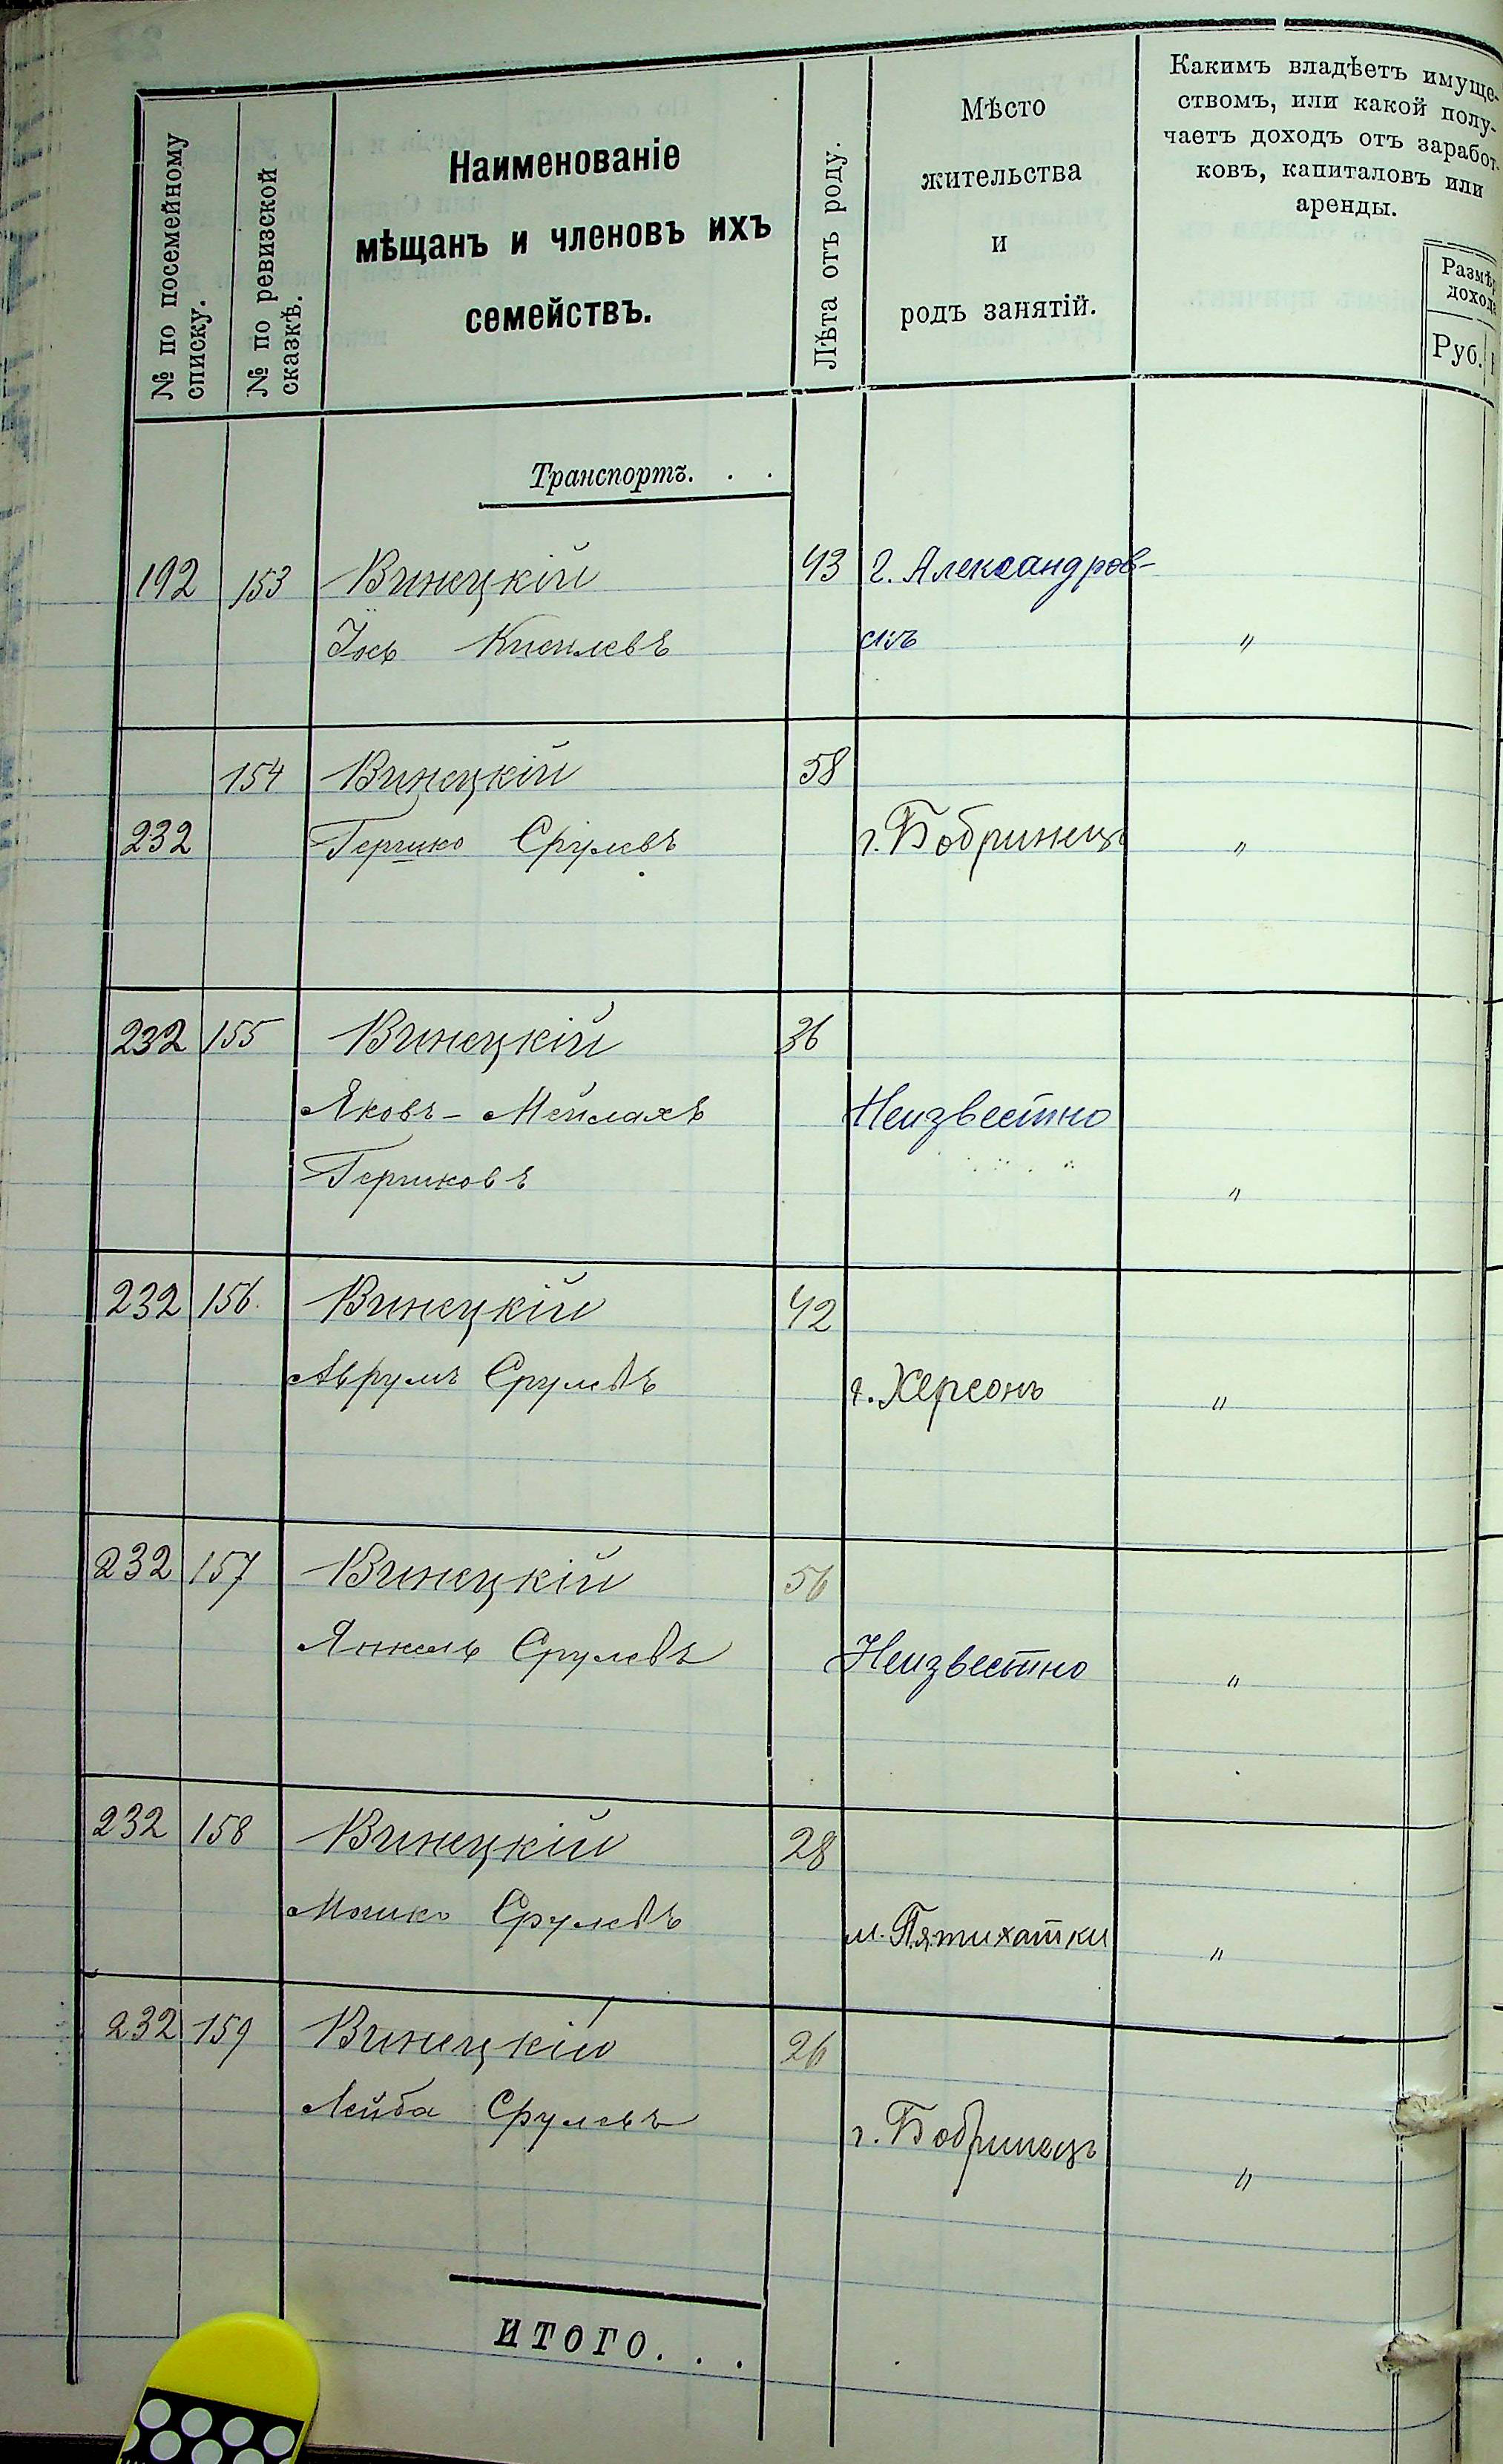 № по посемейному
списку.
№ по ревизской
сказкѣ.
Наименованіе
мѣщанъ и членовъ ихъ
семействъ.
Лѣта отъ роду.
Мѣсто
жительства
и
родъ занятій.
Какимъ владѣетъ имуще-
ствомъ, или какой полу-
чаетъ доходъ отъ заработ-
ковъ, капиталовъ или
аренды.
Размѣ
дохода
Руб.
Транспортъ. . .
192 153 Винецкій 43 г. Александров-
Іось скъ "
154 Винецкій 58
232 Гершко Срулевъ г. Бобринецъ "
232 155 Винецкій 36
Яковъ - Мейлахъ Неизвестно
Гершковъ "
232 156. Винецкій 42
Аврумъ Срулевъ г. Херсонъ "
232 157 Винецкій 56
Янкель Срулевъ Неизвестно "
232 158 Винецкій 28
Мошко Срулевъ м. Пятихатки "
232 159 Винецкій 26
Лейба Срулевъ г. Бобринецъ "
ИТОГО. . .